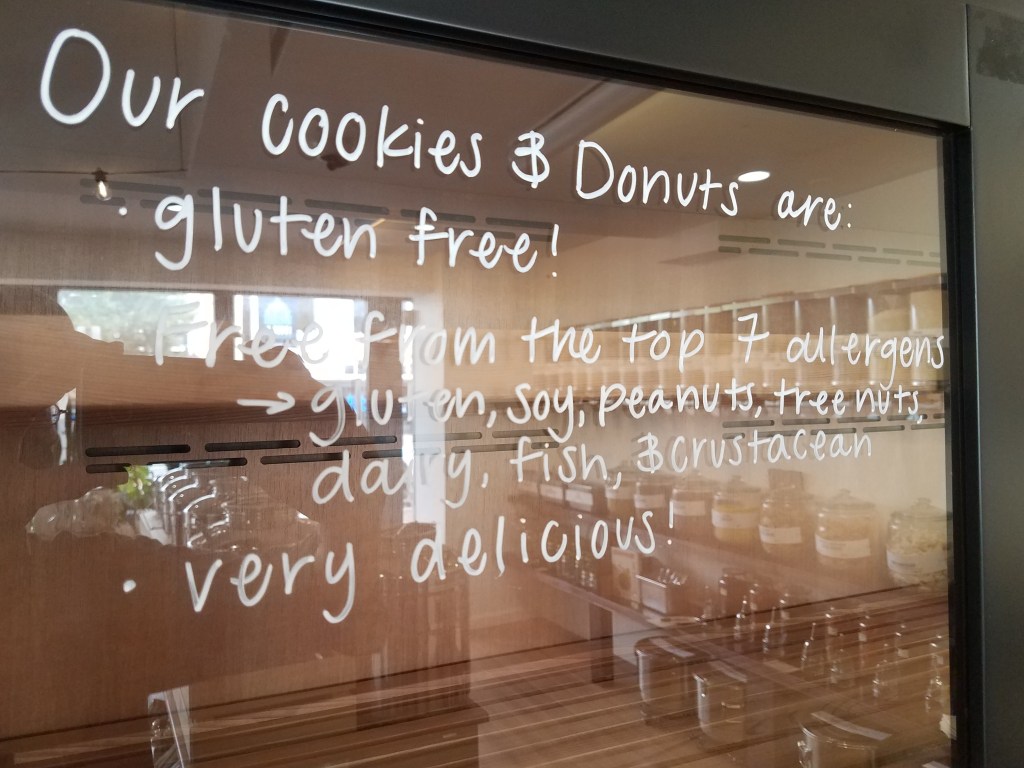 Our cookies & Donuts are:
· gluten free!
Free from the top 7 allergens
→ gluten, soy, peanuts, tree nuts,
dairy, fish, & crustacean
· very delicious!